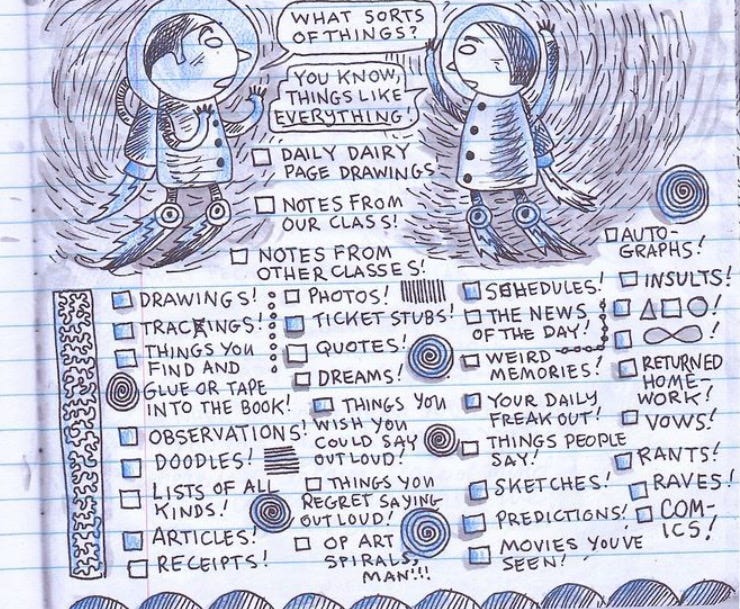 WHAT SORTS
OF THINGS?
YOU KNOW,
THINGS LIKE
EVERYTHING!
DAILY DAIRY
PAGE DRAWINGS
NOTES FROM
OUR CLASS!
NOTES FROM
OTHER CLASSES!
DRAWINGS!
TRACKINGS!
THINGS YOU
FIND AND
GLUE OR TAPE
INTO THE BOOK!
OBSERVATIONS!
DOODLES!
LISTS OF ALL
KINDS!
ARTICLES!
RECEIPTS!
PHOTOS!
TICKET STUBS!
QUOTES!
DREAMS!
THINGS YOU
WISH YOU
COULD SAY
OUTLOUD!
THINGS YOU
REGRET SAYING
OUTLOUD!
OP ART
SPIRALS,
MAN!!!
SCHEDULES!
THE NEWS
OF THE DAY!
WEIRD
MEMORIES!
YOUR DAILY
FREAK OUT!
THINGS PEOPLE
SAY!
SKETCHES!
PREDICTIONS!
MOVIES YOU'VE
SEEN!
AUTO-
GRAPHS!
INSULTS!
△□○!
∞!
RETURNED
HOME-
WORK!
VOWS!
RANTS!
RAVES!
COM-
ICS!